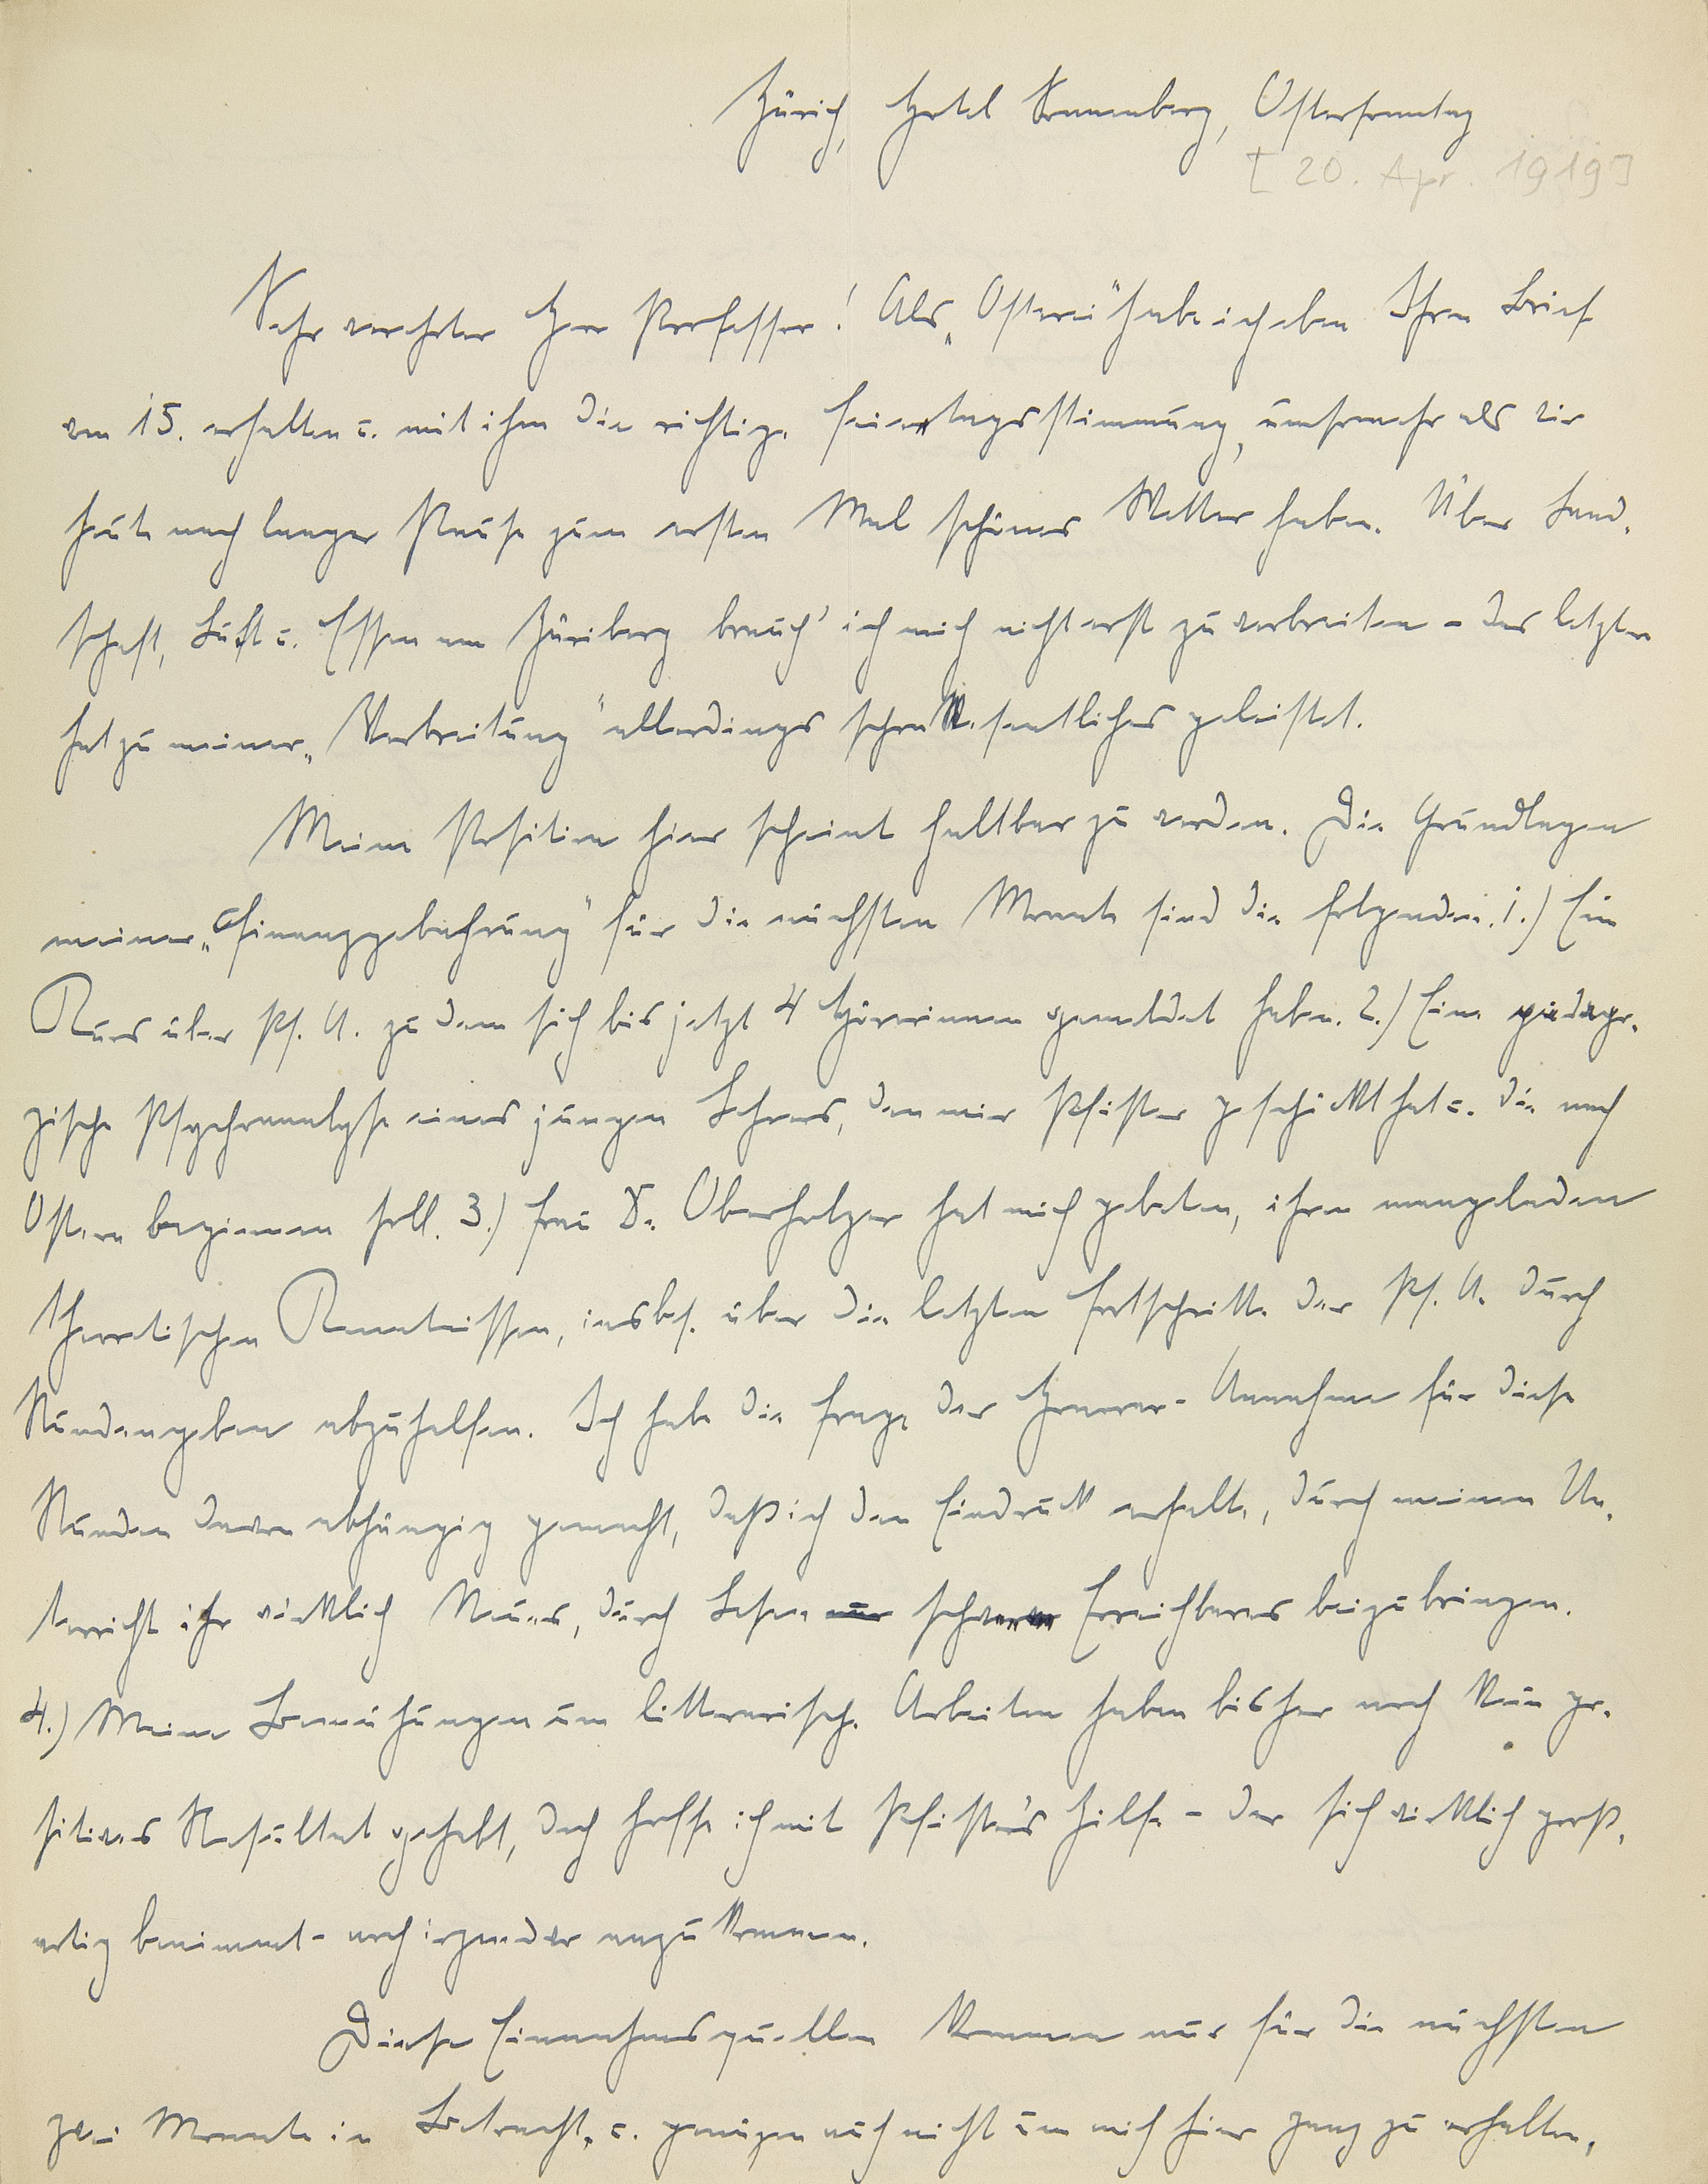 Zürich, Hotel Sonnenberg, Ostersonntag
[20. Apr. 1919]
Sehr verehrter Herr Professor! Als „Osterei“ habe ich eben Ihren Brief
vom 15. erhalten u. mit ihm die richtige Feiertagsstimmung, umsomehr als wir
heute nach langer Pause zum ersten Mal schönes Wetter haben. Über Land-
schaft, Luft u. Essen am Züriberg brauch' ich mich nicht erst zu verbreiten – das letztere
hat zu meiner „Verbreitung“ allerdings schon Wesentliches geleistet.
Meine Position hier scheint haltbar zu werden. Die Grundlagen
meiner „Finanzgebahrung“ für die nächsten Monate sind die folgenden. 1.) Ein
Kurs über Ps. A. zu dem sich bis jetzt 4 Hörerinnen gemeldet haben. 2.) Eine pädago-
gische Psychoanalyse eines jungen Lehrers, den mir Pfister geschickt hat u. die nach
Ostern beginnen soll. 3.) Frau Dr. Oberholzer hat mich gebeten, ihren mangelnden
theoretischen Kenntnissen, insbes. über die letzten Fortschritte der Ps. A. durch
Stundengeben abzuhelfen. Ich habe die Frage der Honorar-Annahme für diese
Stunden davon abhängig gemacht, daß ich den Eindruck erhalte, durch meinen Un-
terricht ihr wirklich Neues, durch Lesen nur schwer Erreichbares beizubringen.
4.) Meine Bemühungen um litterarische Arbeiten haben bisher noch kein po-
sitives Resultat gehabt, doch hoffe ich mit Pfister's Hilfe – der sich wirklich groß-
artig benimmt – noch irgendwo anzukommen.
Diese Einnahmsquellen kommen nur für die nächsten
zwei Monate in Betracht, u. genügen auch nicht um mich hier ganz zu erhalten,